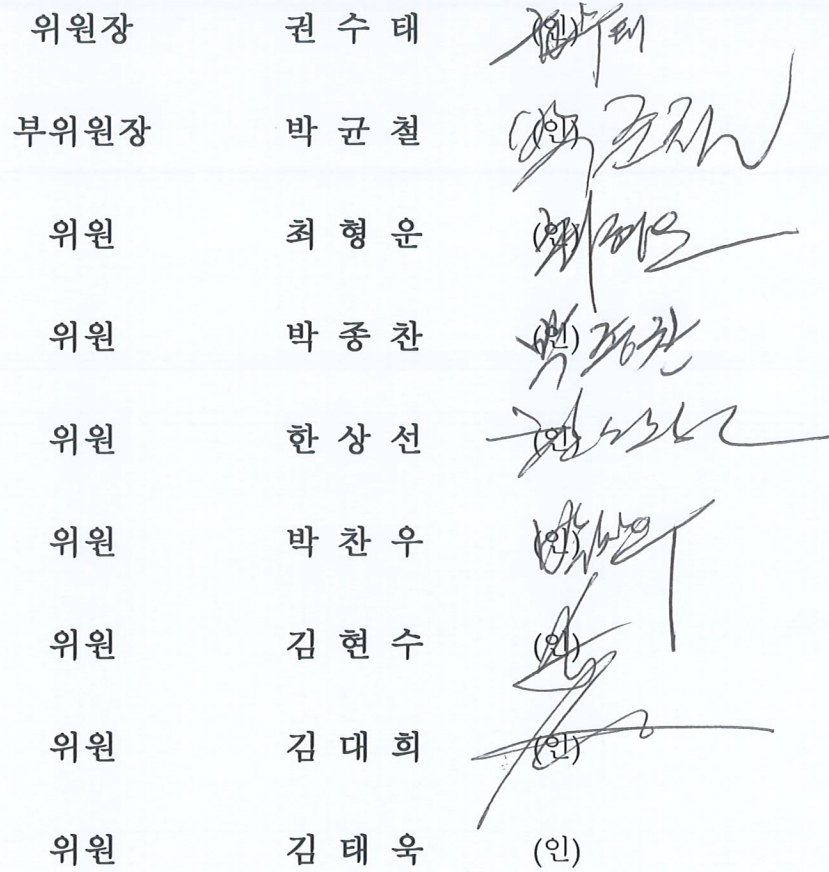 위원장 권 수 태 (인)
부위원장 박 균 철 (인)
위원 최 형 운 (인)
위원 박 종 찬 (인)
위원 한 상 선 (인)
위원 박 찬 우 (인)
위원 김 현 수 (인)
위원 김 대 희 (인)
위원 김 태 욱 (인)